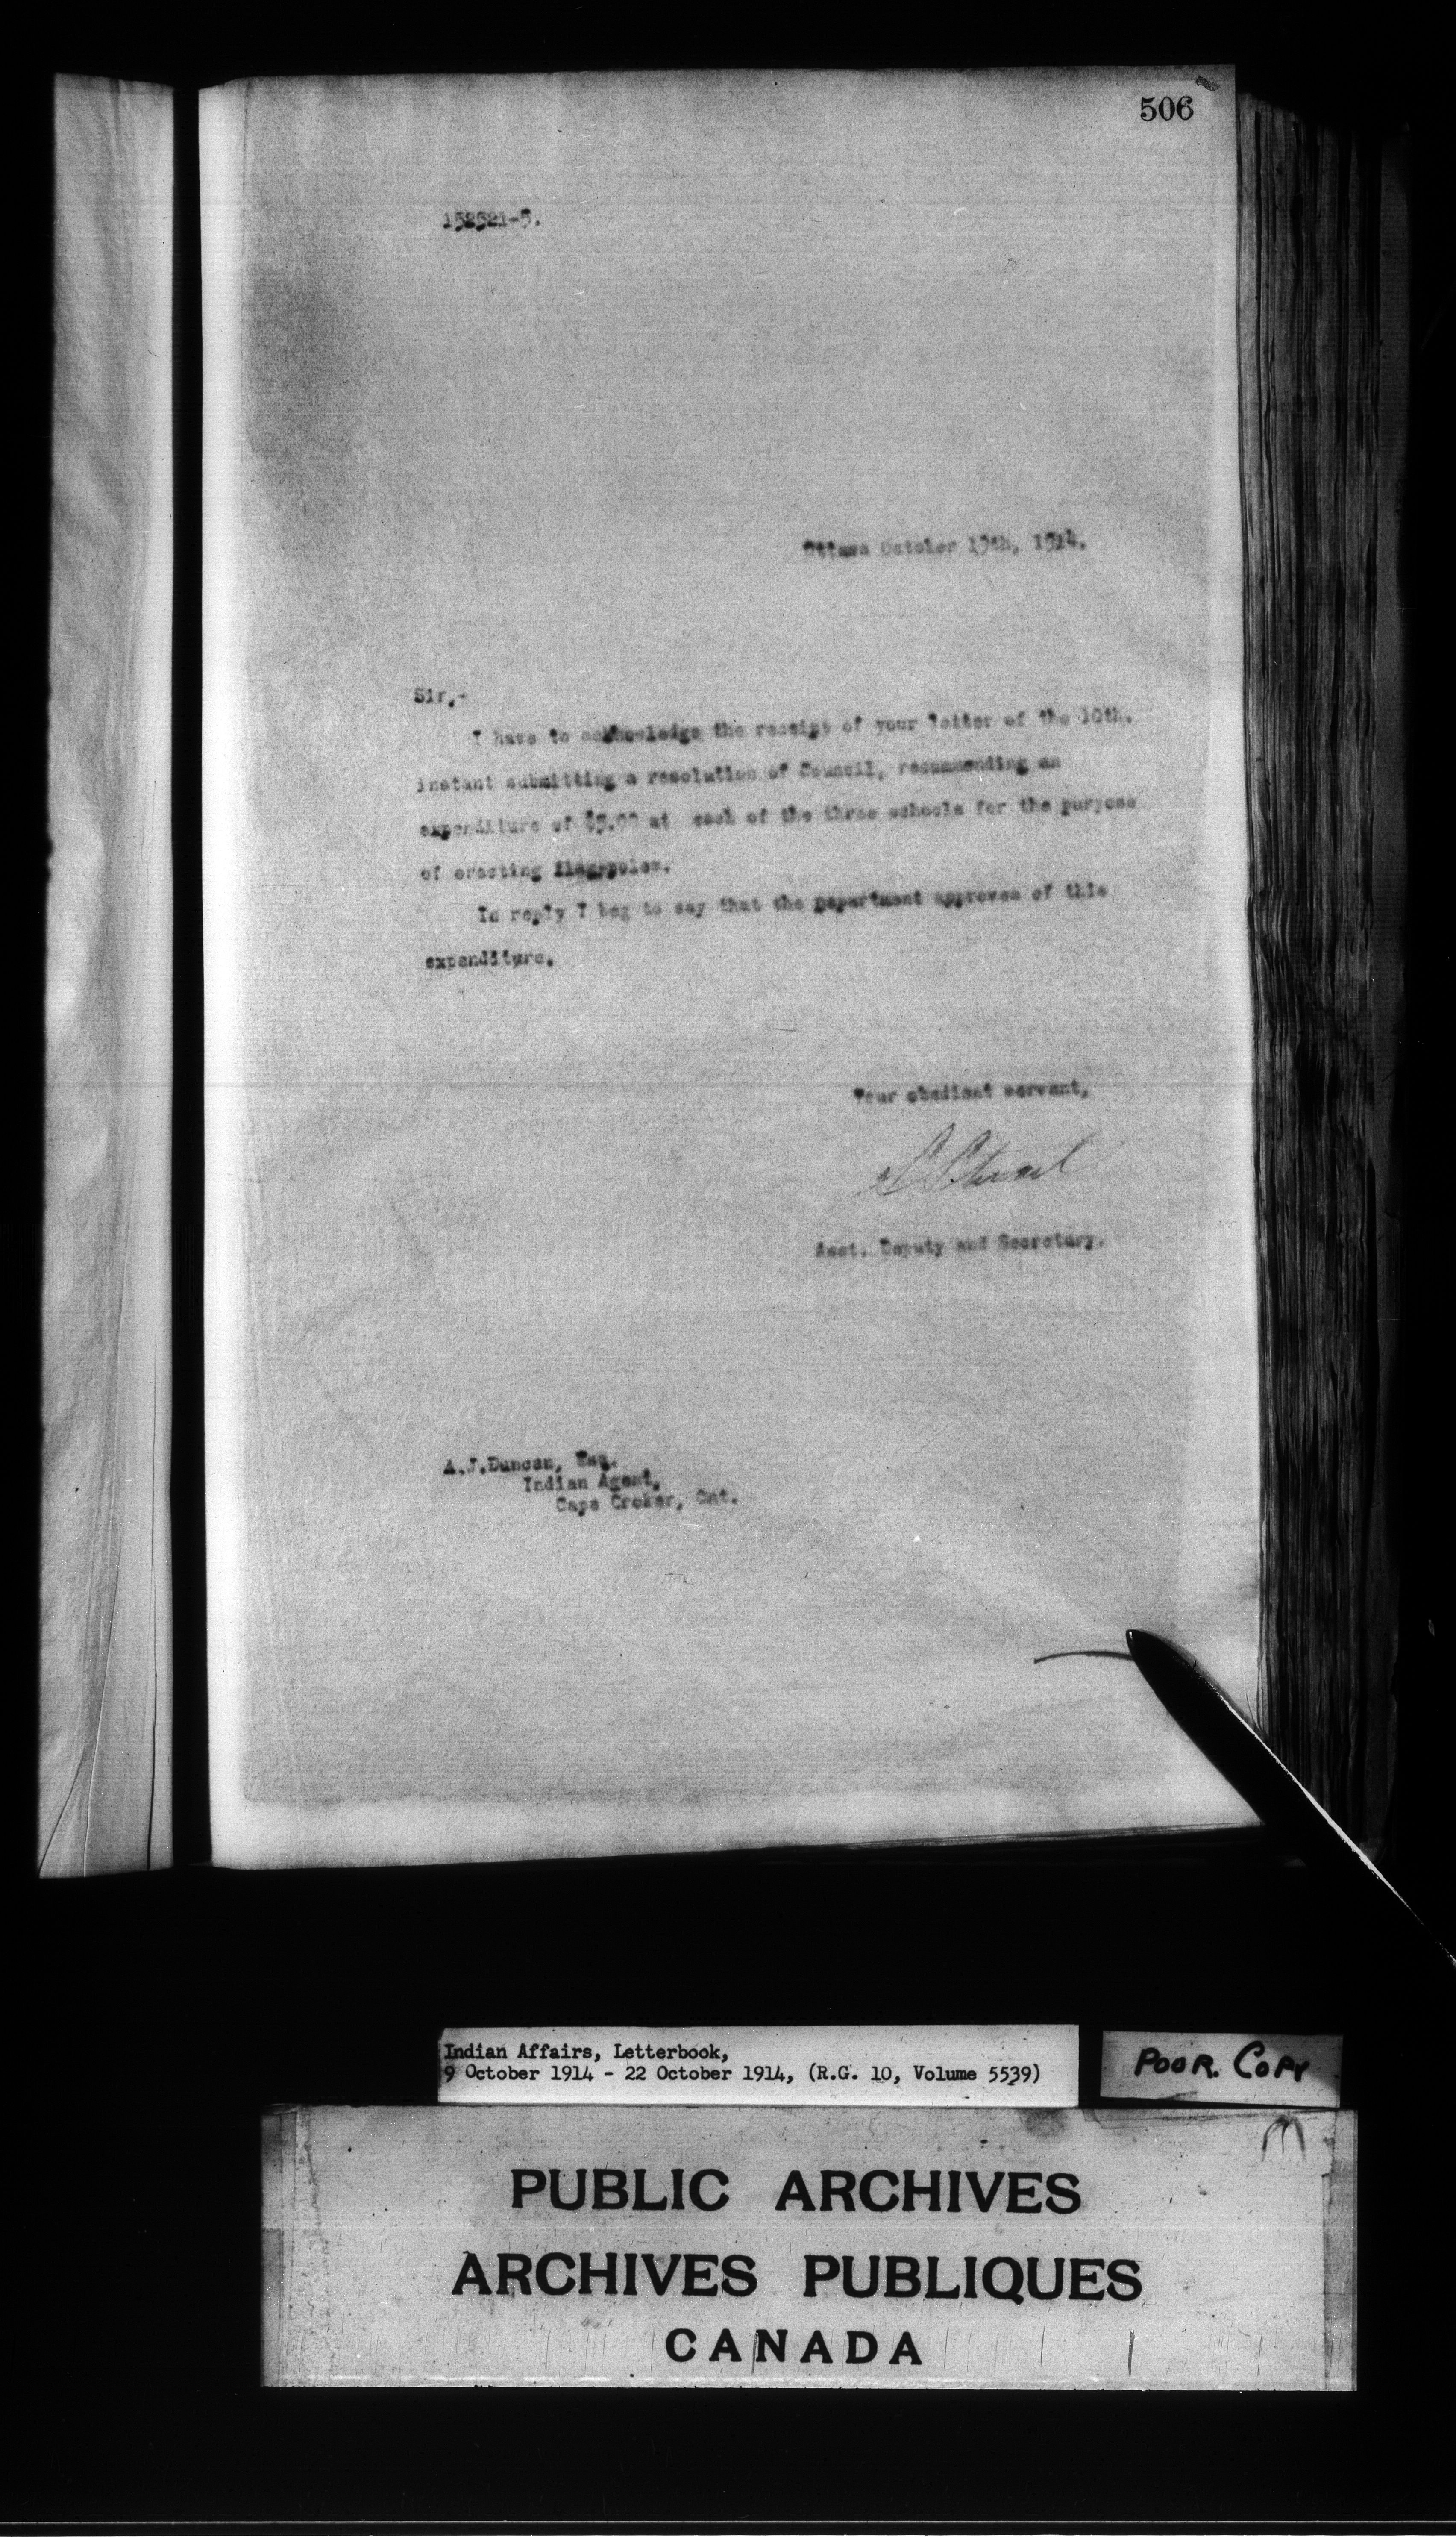 506
152521-5.
Ottawa October 15th, 1914.
Sir,-
I have to acknowledge the receipt of your letter of the 10th.
instant submitting a resolution of Council, recommending an
expenditure of $5.00 at each of the three schools for the purpose
of erecting flag-poles.
In reply I beg to say that the Department approves of this
expenditure.
Your obedient servant,
Asst. Deputy and Secretary.
A.J.Duncan, Esq.
Indian Agent,
Cape Croker, Ont.
Indian Affairs, Letterbook,
9 October 1914 - 22 October 1914, (R.G. 10, Volume 5539)
POOR. COPY
PUBLIC ARCHIVES
ARCHIVES PUBLIQUES
CANADA